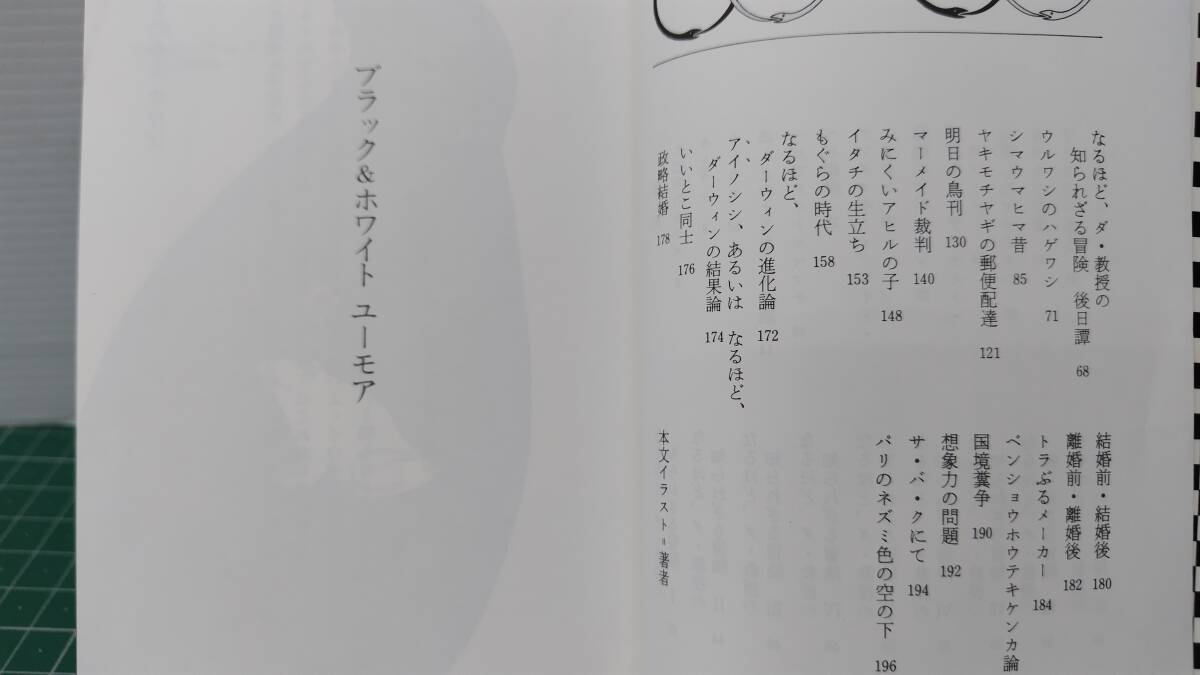 なるほど、ダ・教授の
知られざる冒険　後日譚 68
ウルワシのハゲワシ 71
シマウマヒマ昔 85
ヤキモチヤギの郵便配達 121
明日の鳥刊 130
マーメイド裁判 140
みにくいアヒルの子 148
イタチの生立ち 153
もぐらの時代 158
なるほど、
ダーウィンの進化論 172
アイノシシ、あるいは　なるほど、
ダーウィンの結果論 174
いいとこ同士 176
政略結婚 178
結婚前・結婚後 180
離婚前・離婚後 182
トラぶるメーカー 184
ベンショウホウテキケンカ論
国境糞争 190
想象力の問題 192
サ・バ・クにて 194
パリのネズミ色の空の下 196
本文イラスト＝著者
ブラック＆ホワイト ユーモア